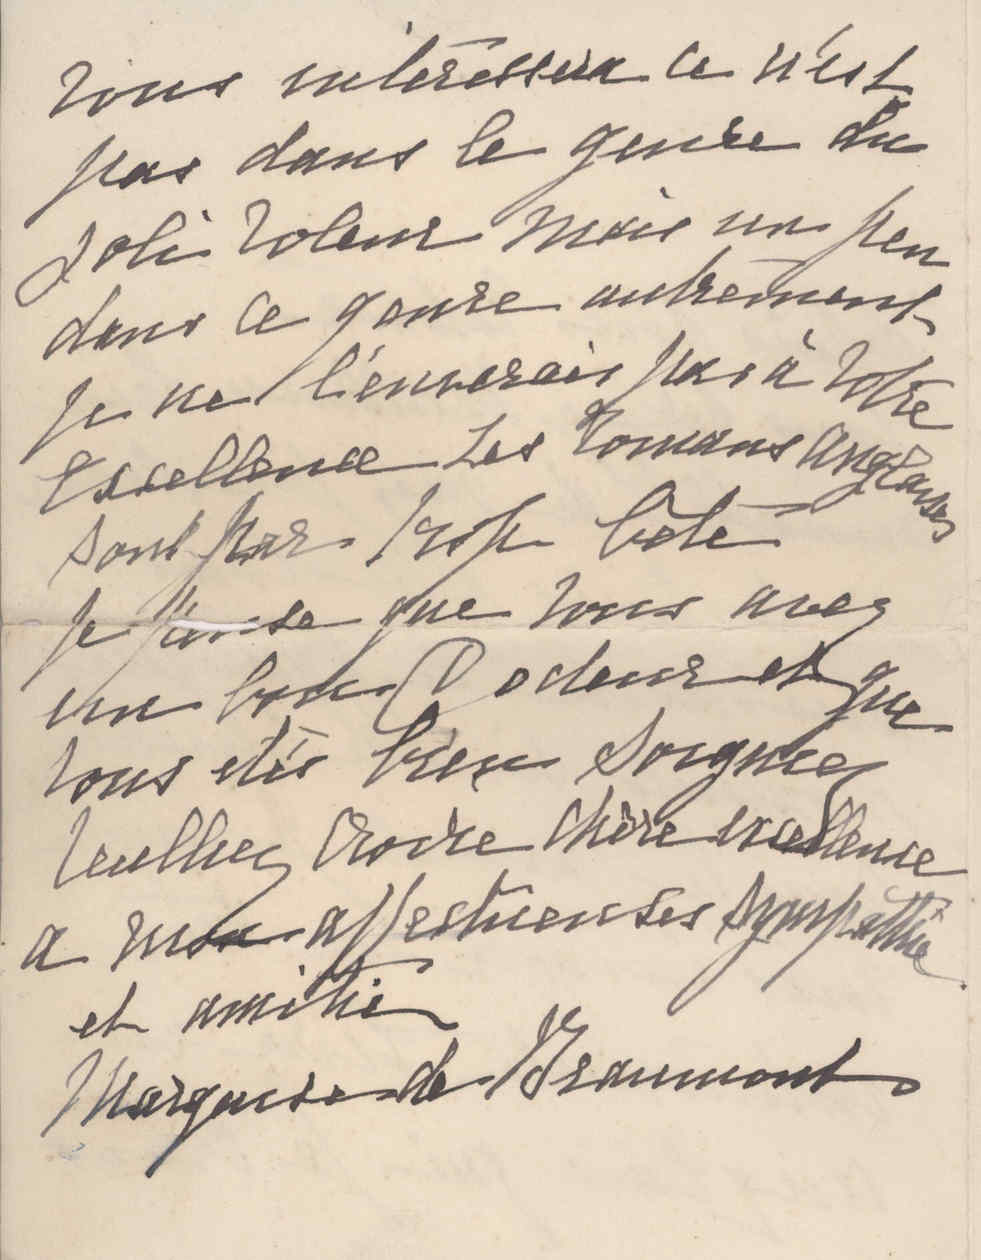 vous intéressera ce n'est
pas dans le genre du
Joli Voleur mais un peu
dans ce genre autrement
je ne l'enverais pas à Votre
Excellence Les Romans anglaises
sont par trop bête
Je pense que vous avez
un bon Docteur et que
vous etês bien soignée
Veulliez Croire Chère excellence
a mon affectueuses sympathie
et amitié
Marquise de